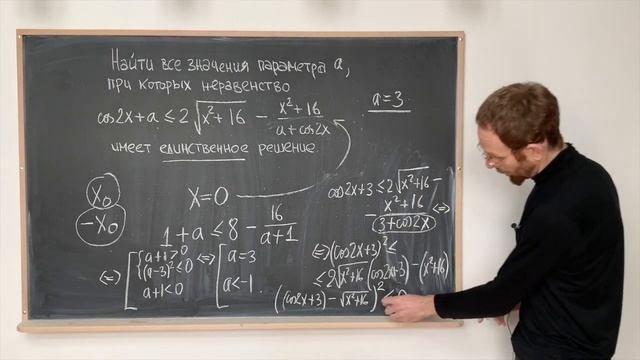 Найти все значения параметра a,
при которых неравенство
cos2x+a ≤ 2√(x²+16) − (x²+16)/(a+cos2x)
имеет единственное решение.
a=3
x₀
−x₀
x=0
1+a ≤ 8 − 16/(a+1)
⇔ [ { a+1>0
(a−3)²≤0
a+1<0
⇔ [ a=3
a<−1.
cos2x+3 ≤ 2√(x²+16) −
− (x²+16)/(3+cos2x) ⇔
⇔ (cos2x+3)² ≤
≤ 2√(x²+16) (cos2x+3) − (x²+16)
((cos2x+3) − √(x²+16))² ≤ 0